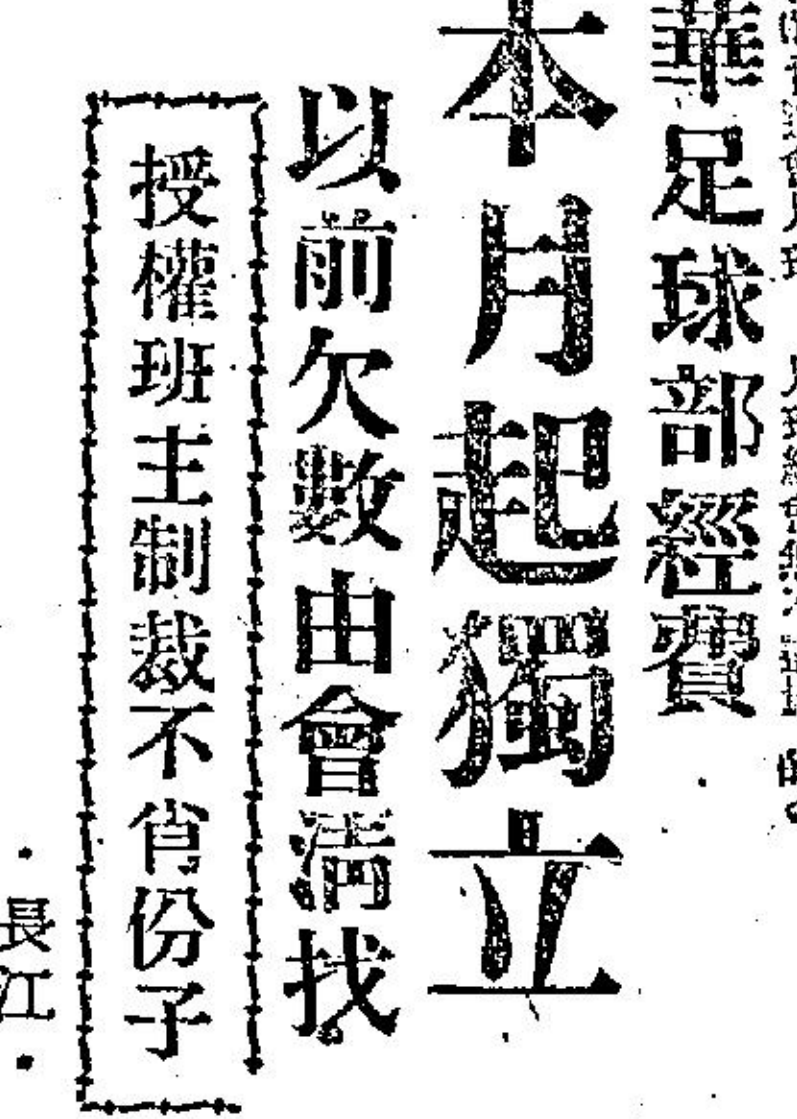 華足球部經費
本月起獨立
以前欠數由會清找
授權班主制裁不肖份子
·長江·